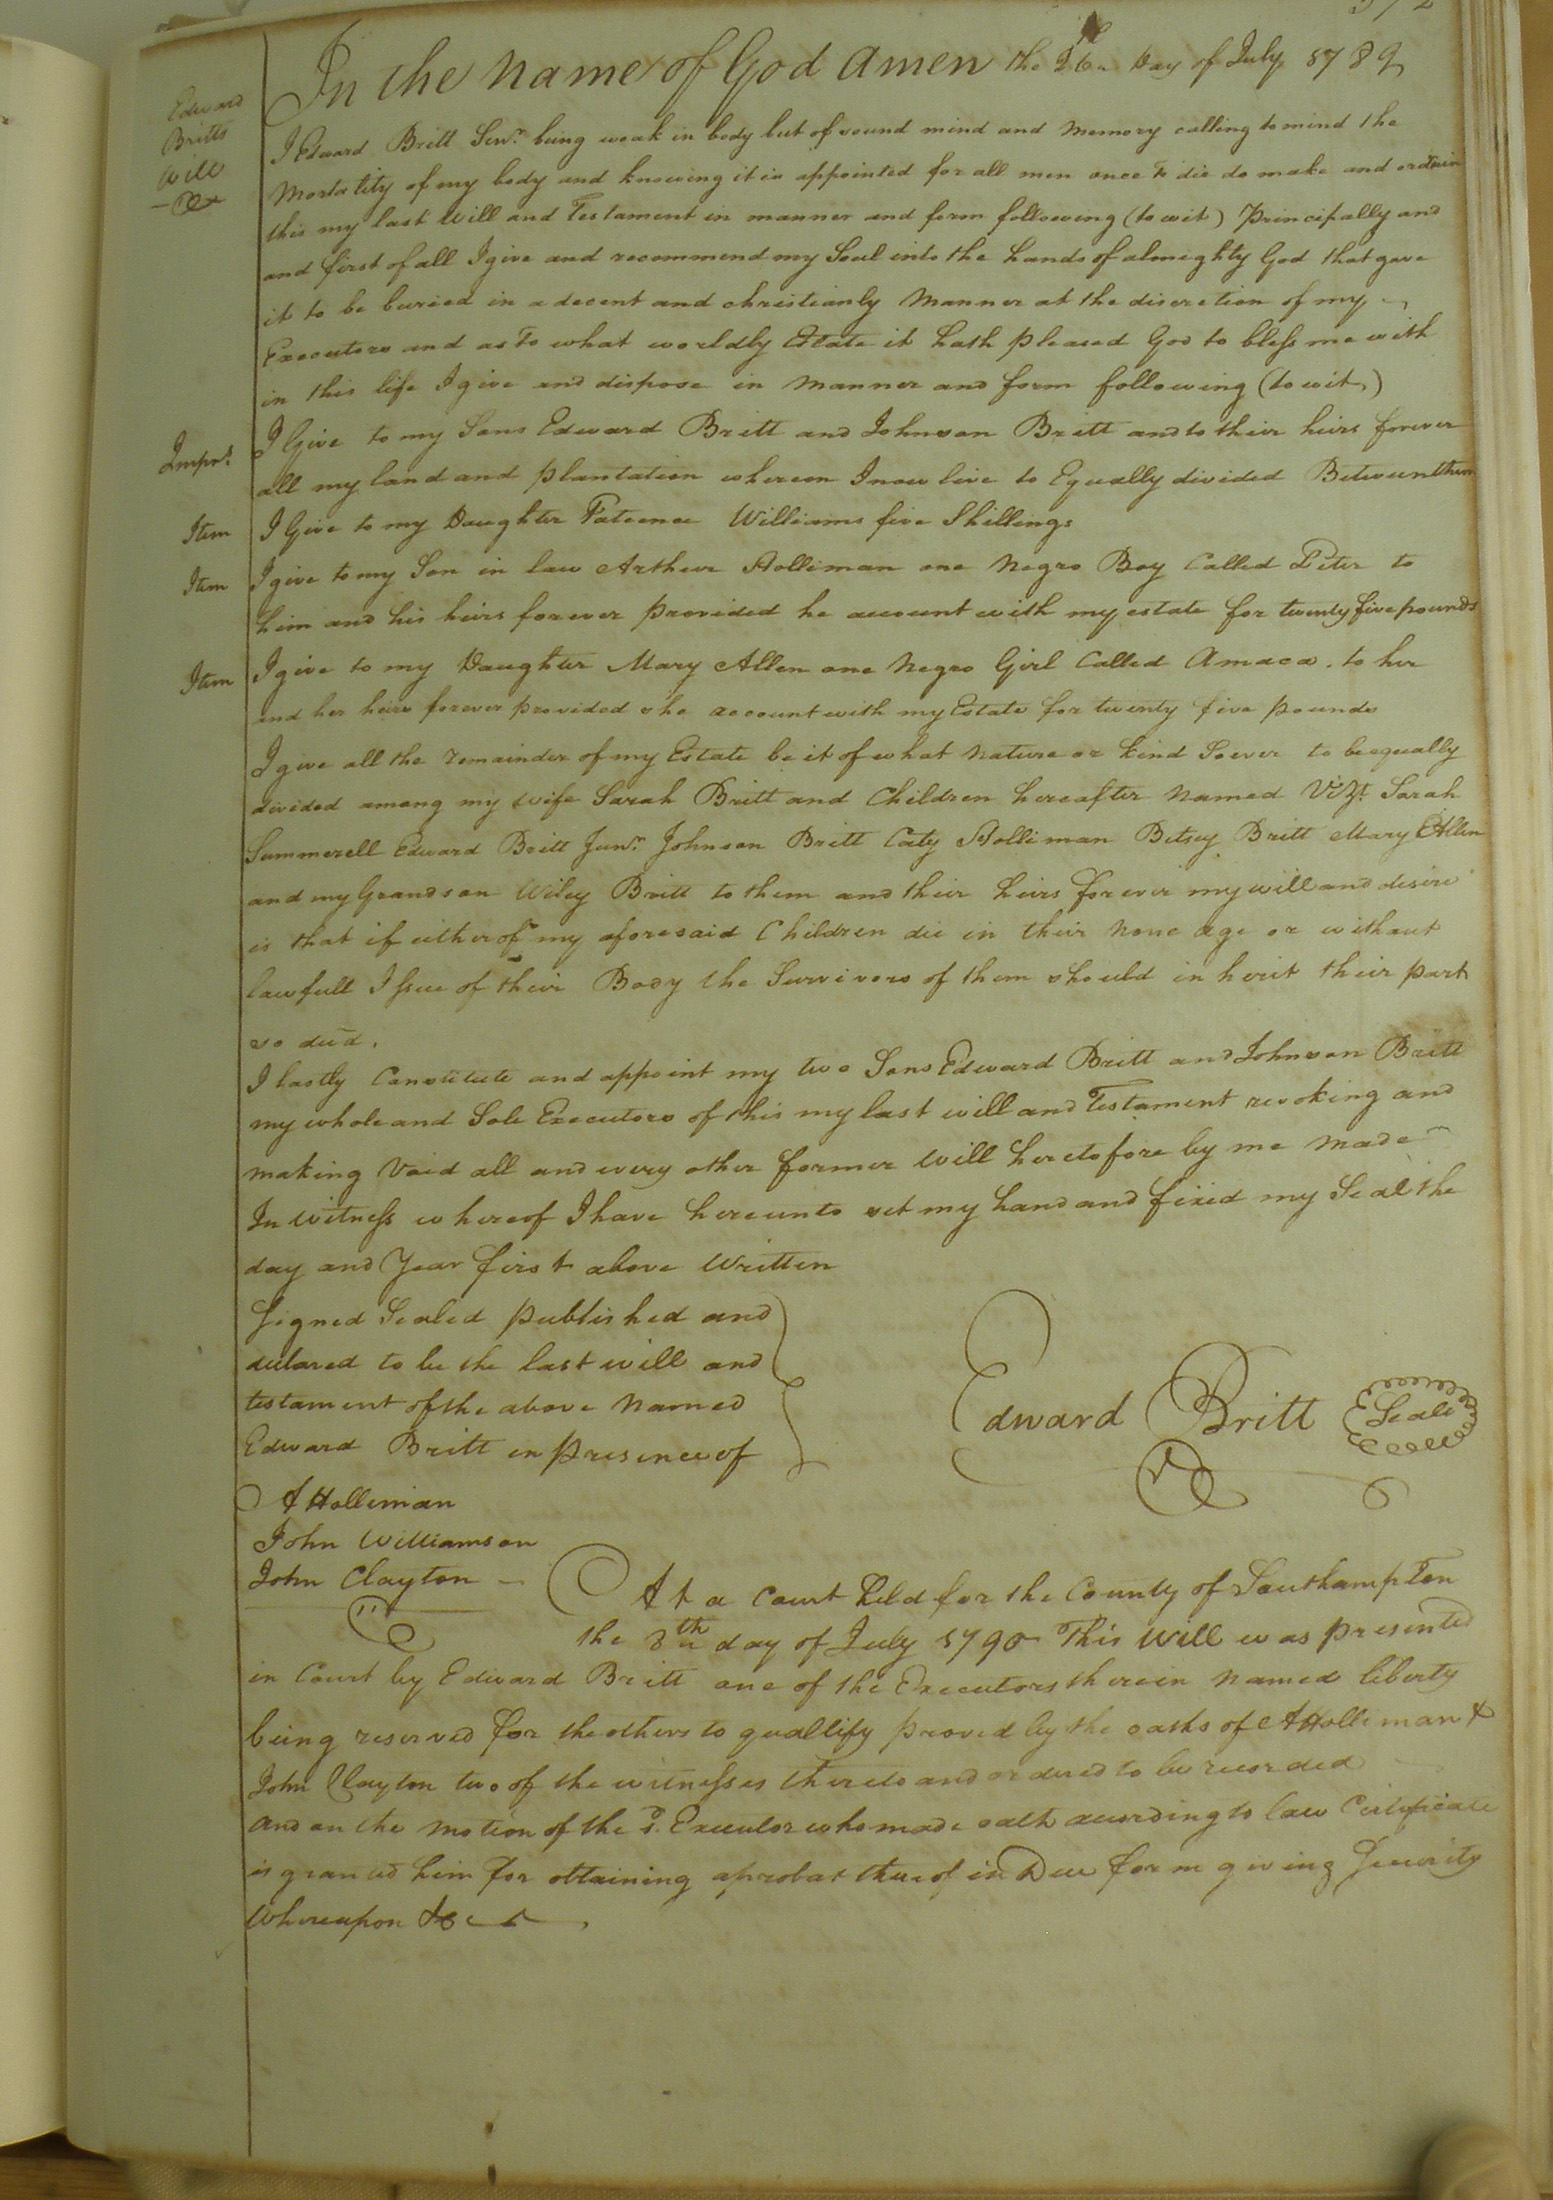 Edward
Britts
Will
In the name of God Amen the 26th Day of July 1789
I Edward Britt Senr. being weak in body but of sound mind and memory calling to mind the
Mortality of my body and knowing it is appointed for all men once to die do make and ordain
this my last Will and Testament in manner and form following (to wit) Principally and
and first of all I give and recommend my Soul into the hands of almighty God that gave
it to be buried in a decent and christianly Manner at the discretion of my
Executors and as to what worldly Estate it hath pleased God to bless me with
in this life I give and dispose in Manner and form following (to wit)
Imprs. I Give to my Sons Edward Britt and Johnson Britt and to their heirs forever
all my land and plantation whereon I now live to Equally divided Between them
Item I Give to my Daughter Patience Williams five Shillings
Item I give to my Son in law Arthur Holliman one Negro Boy Called Peter to
him and his heirs forever provided he account with my estate for twenty five pounds
Item I give to my Daughter Mary Allen one Negro Girl Called Amaca. to her
and her heirs forever provided she account with my Estate for twenty five pounds
I give all the remainder of my Estate be it of what nature or kind Soever to be equally
divided among my wife Sarah Britt and Children hereafter named Vizt. Sarah
Summerell Edward Britt Junr. Johnson Britt Caty Holliman Betsey Britt Mary Allen
and my Grandson Wiley Britt to them and their heirs forever my will and desire
is that if either of my aforesaid Children die in their none age or without
lawfull Issue of their Body the Survivors of them should in herit their part
so died.
I lastly Constitute and appoint my two Sons Edward Britt and Johnson Britt
my whole and Sole Executors of this my last will and Testament revoking and
making Void all and every other former Will heretofore by me made
In Witness whereof I have hereunto set my hand and fixed my Seal the
day and Year first above Written
Signed Sealed published and
declared to be the last will and
testament of the above Named
Edward Britt in presence of
Edward Britt Seale
A Holliman
John Williamson
John Clayton
At a Court held for the County of Southampton
the 8th day of July 1790 This Will was presented
in Court by Edward Britt one of the Executors therein Named liberty
being reserved for the others to quallify proved by the oaths of A Holliman &
John Clayton two of the witnesses thereto and ordered to be recorded
and on the motion of the sd. Executor who made oath according to law Certificate
is granted him for obtaining a probat thereof in Due form giving Security
Whereupon &c